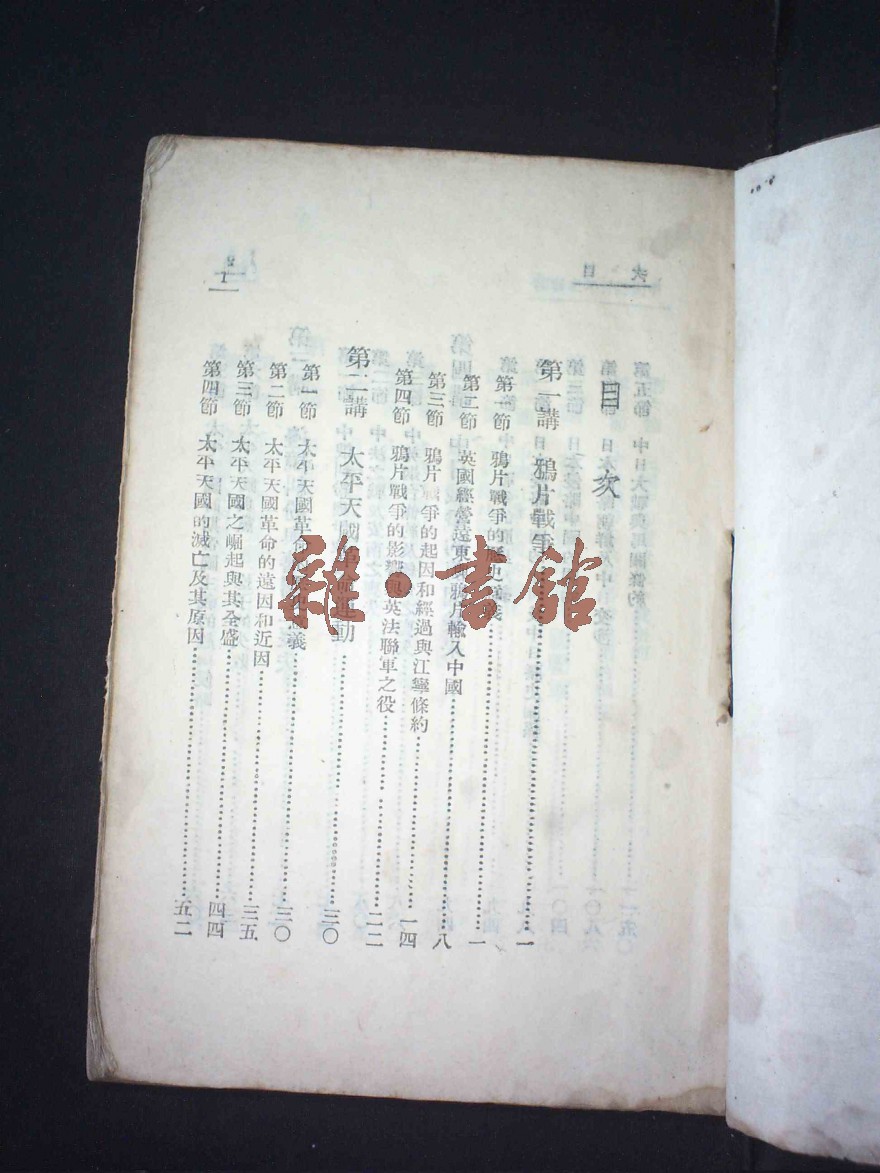 目次
1
目次
第一講 鴉片戰爭……一
第一節 鴉片戰爭的史意義……一
第二節 英國經營遠東與鴉片輸入中國……八
第三節 鴉片戰爭的起因和經過與江寧條約……一四
第四節 鴉片戰爭的影響與英法聯軍之役……二二
第二講 太平天國運動……三〇
第一節 太平天國革命意義……三〇
第二節 太平天國革命的遠因和近因……三五
第三節 太平天國之崛起與其全盛……四四
第四節 太平天國的滅亡及其原因……五二
雜·書館